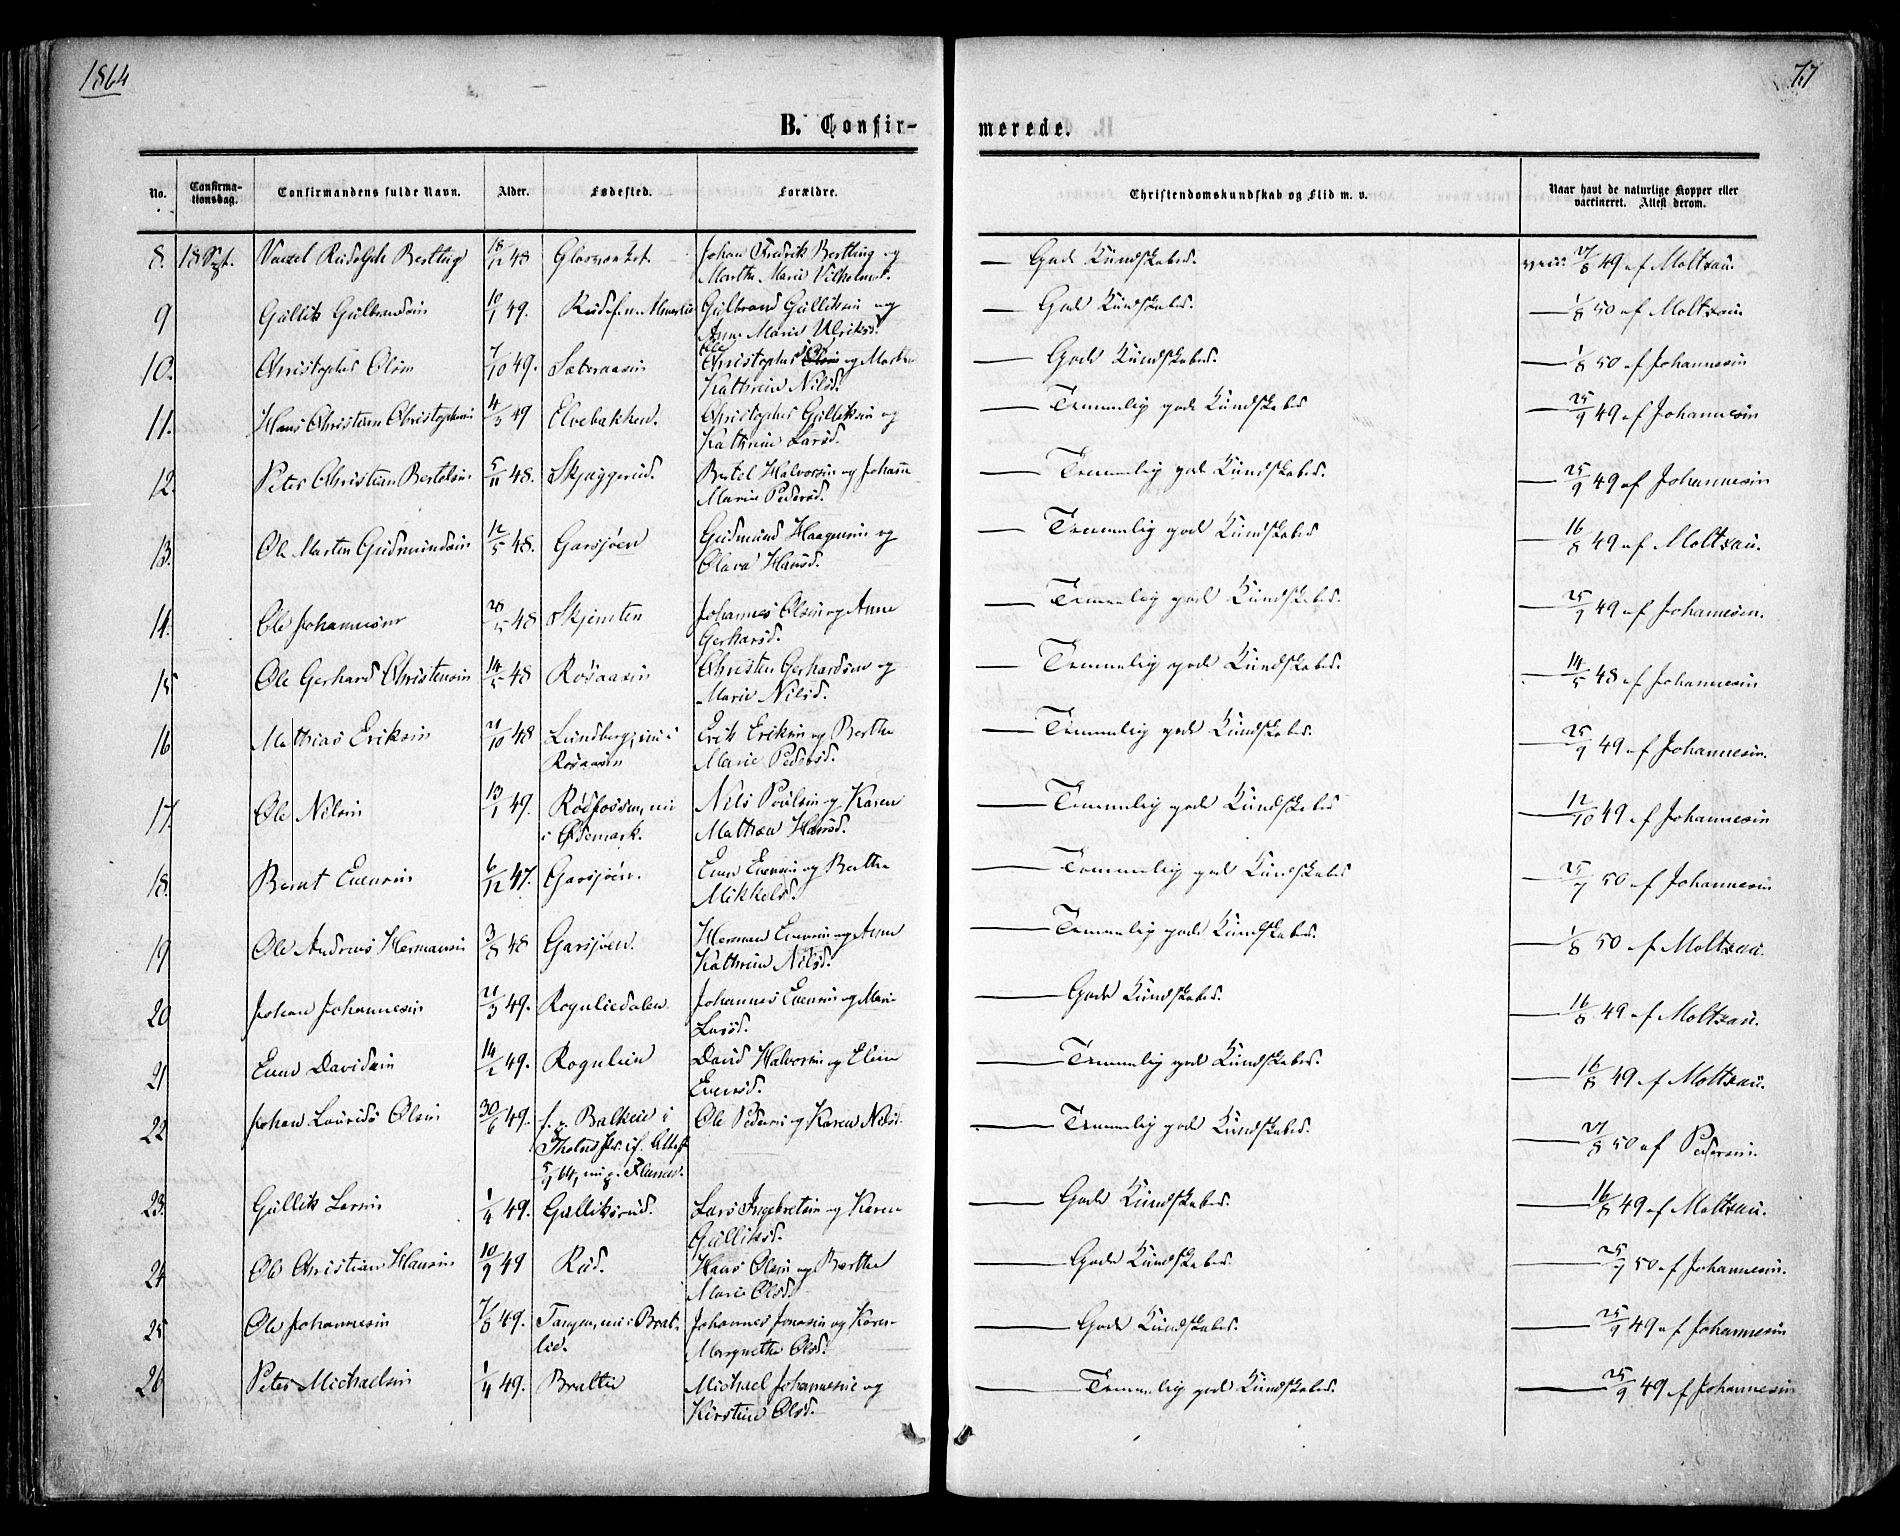 1864
77
B. Confir-
merede.
No.
Confirma-
tionsdag.
Confirmandens fulde Navn.
Alder.
Fødested.
Forældre.
Christendomskundskab og Flid m. v.
Naar havt de naturlige Kopper eller
vaccineret. Attest derom.
8. 18 Sept. Rudolph Bertting 18/12 48 Johan Fredrik Bertting og — God Kundskabs. 27/8 49 af Moltzau.
Marthe Marie Vilhelmsd.
9 Gullik Gulbrandsen 10/1 49. Gulbrand Gulliksen og — God Kundskabs. — 1/8 50 af Moltzau
Anne Marie Ulriksd.
10. Christopher Olsen 7/10 49. Sæteraasen Ole
Christophersen og Marthe — Gode Kundskabs. — 1/8 50 af Johannesen
Kathrine Nilsd.
11. Hans Christian Christophersen 4/3 49 Elvebakken. Christopher Gulliksen og — Temmelig gode Kundskabs — 25/9 49 af Johannesen
Kathrine Larsd.
12. Peter Christian Bertelsen 5/11 48. Skjæggerud. Bertel Halvorsen og Johanne — Temmelig gode Kundskabs. — 25/9 49 af Johannesen
Marie Pedersd.
13. Ole Martin Gudmundsen 12/5 48. Garsjøen Gudmund Haagensen og — Temmelig gode Kundskabs — 16/8 49 af Moltzau.
Olava Hansd.
14. Ole Johannesen 28/5 48 Skjimten Johannes Olsen og Anne — Temmelig gode Kundskabs. — 25/9 49 af Johannesen.
Gerhardsd.
15 Ole Gerhard Christensen 14/5 48 Rosaasen Christen Gerhardsen og — Temmelig gode Kundskabs. — 14/5 48 af Johannesen
Marie Nilsd.
16 Mathias Eriksen 21/10 48 Lundberg, nu i Erik Eriksen og Berthe — Temmelig gode Kundskabs. — 25/9 49 af Johannesen.
Rosaasen Marie Pedersd.
17. Ole Nilsen 13/1 49. Rødfossen, nu Nils Poulsen og Karen — Temmelig gode Kundskabs — 12/10 49 af Johannesen
i Ødemark. Mathea Hansd.
18. Bernt Evensen 6/12 47. Garsjøen. Even Evensen og Berthe — Temmelig gode Kundskabs — 25/7 50 af Johannesen
Mikkelsd.
19 Ole Andreas Hermansen 3/8 48 Garsjøen. Herman Evensen og Anne — Temmelig gode Kundskabs. — 1/8 50 af Moltzau.
Kathrine Nilsd.
20 Johan Johannesen 21/3 49. Rognliedalen Johannes Evensen og Marie — Gode Kundskabs. — 16/8 49 af Moltzau.
Larsd.
21 Even Davidsen 14/2 49. Rognlien David Halvorsen og Eline — Temmelig gode Kundskabs. — 16/8 49 af Moltzau.
Evensd.
22 Johan Laurits Olsen 30/6 49. f. p. i Ole Pedersen og Karen Nilsd. — Temmelig gode Kundskabs. — 27/8 50 af Pedersen.
Attest
5/9 64, nu p.
23. Gullik Larsen 1/4 49. Gulliksrud. Lars Ingebretsen og Karen — Gode Kundskabs. — 16/8 49 af Moltzau.
Gulliksd.
24 Ole Christian Hansen 10/9 49 Rud. Hans Olsen og Berthe — Gode Kundskabs. — 25/7 50 af Johannesen.
Marie Olsd.
25 Ole Johannesen 7/8 49. Tangen, nu i Brat- Johannes Jonasen og Karen — Gode Kundskabs. — 25/9 49 af Johannesen
lie. Margrethe Olsd.
26 Peter Michaelsen 1/4 49. Bratlie Michael Johannesen og — Temmelig gode Kundskabs. — 25/9 49 af Johannesen
Kirstine Olsd.